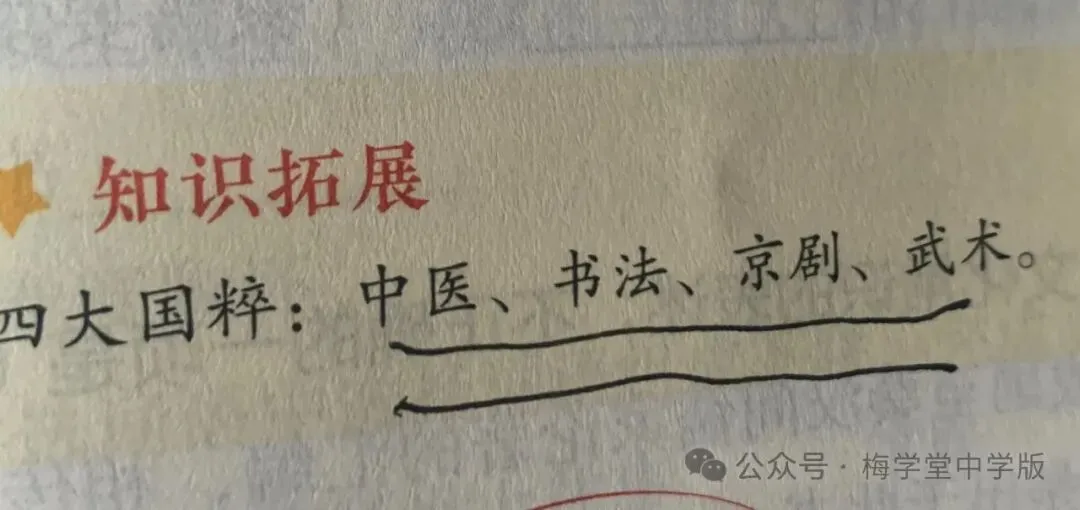 知识拓展
四大国粹：中医、书法、京剧、武术。
公众号·梅学堂中学版